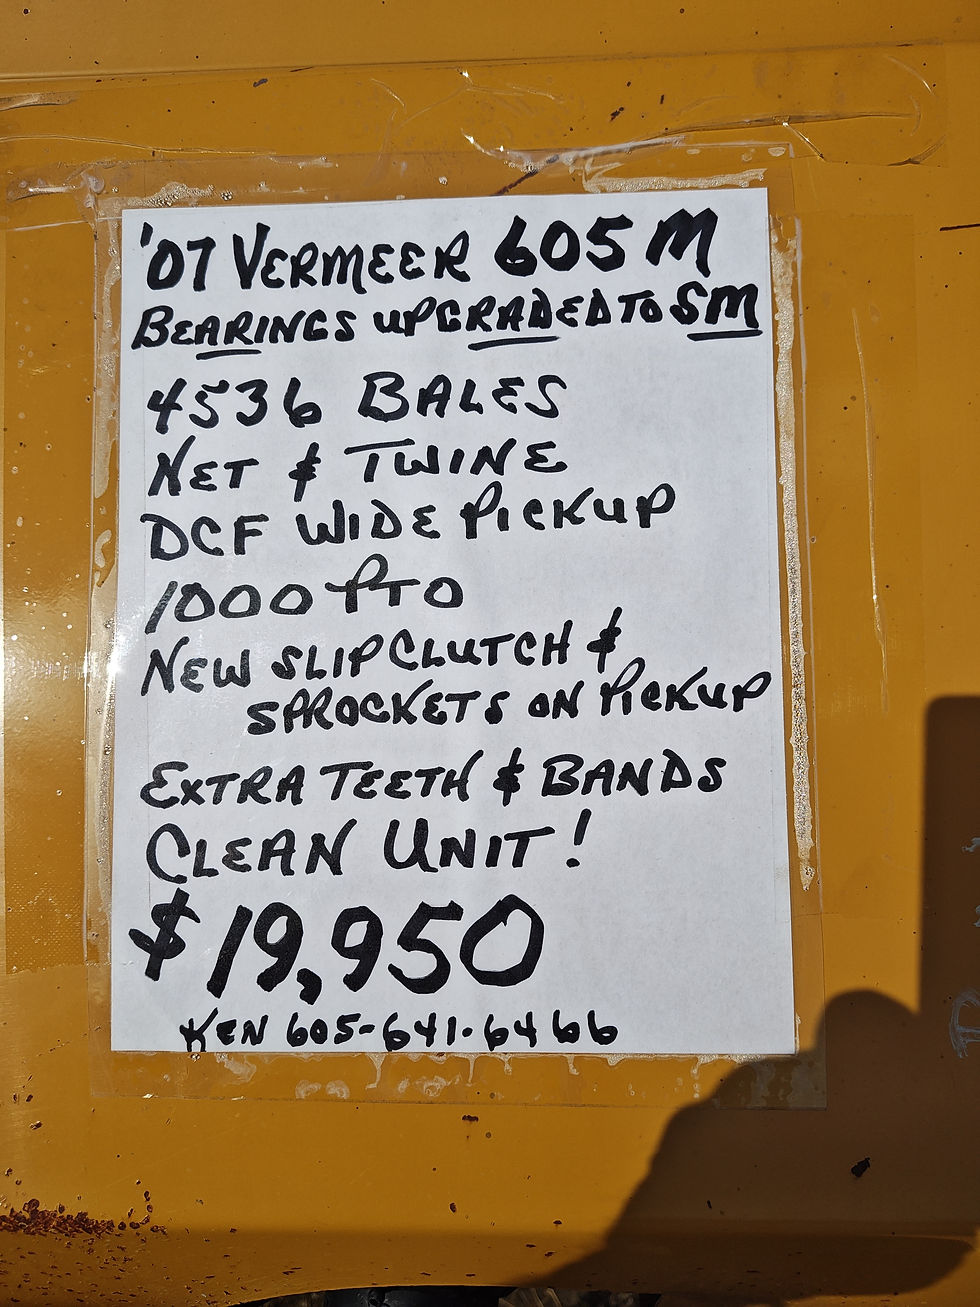 '07 VERMEER 605M
BEARINGS UPGRADED TO SM
4536 BALES
NET & TWINE
DCF WIDE PICKUP
1000 PTO
NEW SLIPCLUTCH &
SPROCKETS ON PICKUP
EXTRA TEETH & BANDS
CLEAN UNIT!
$19,950
KEN 605-641-6466